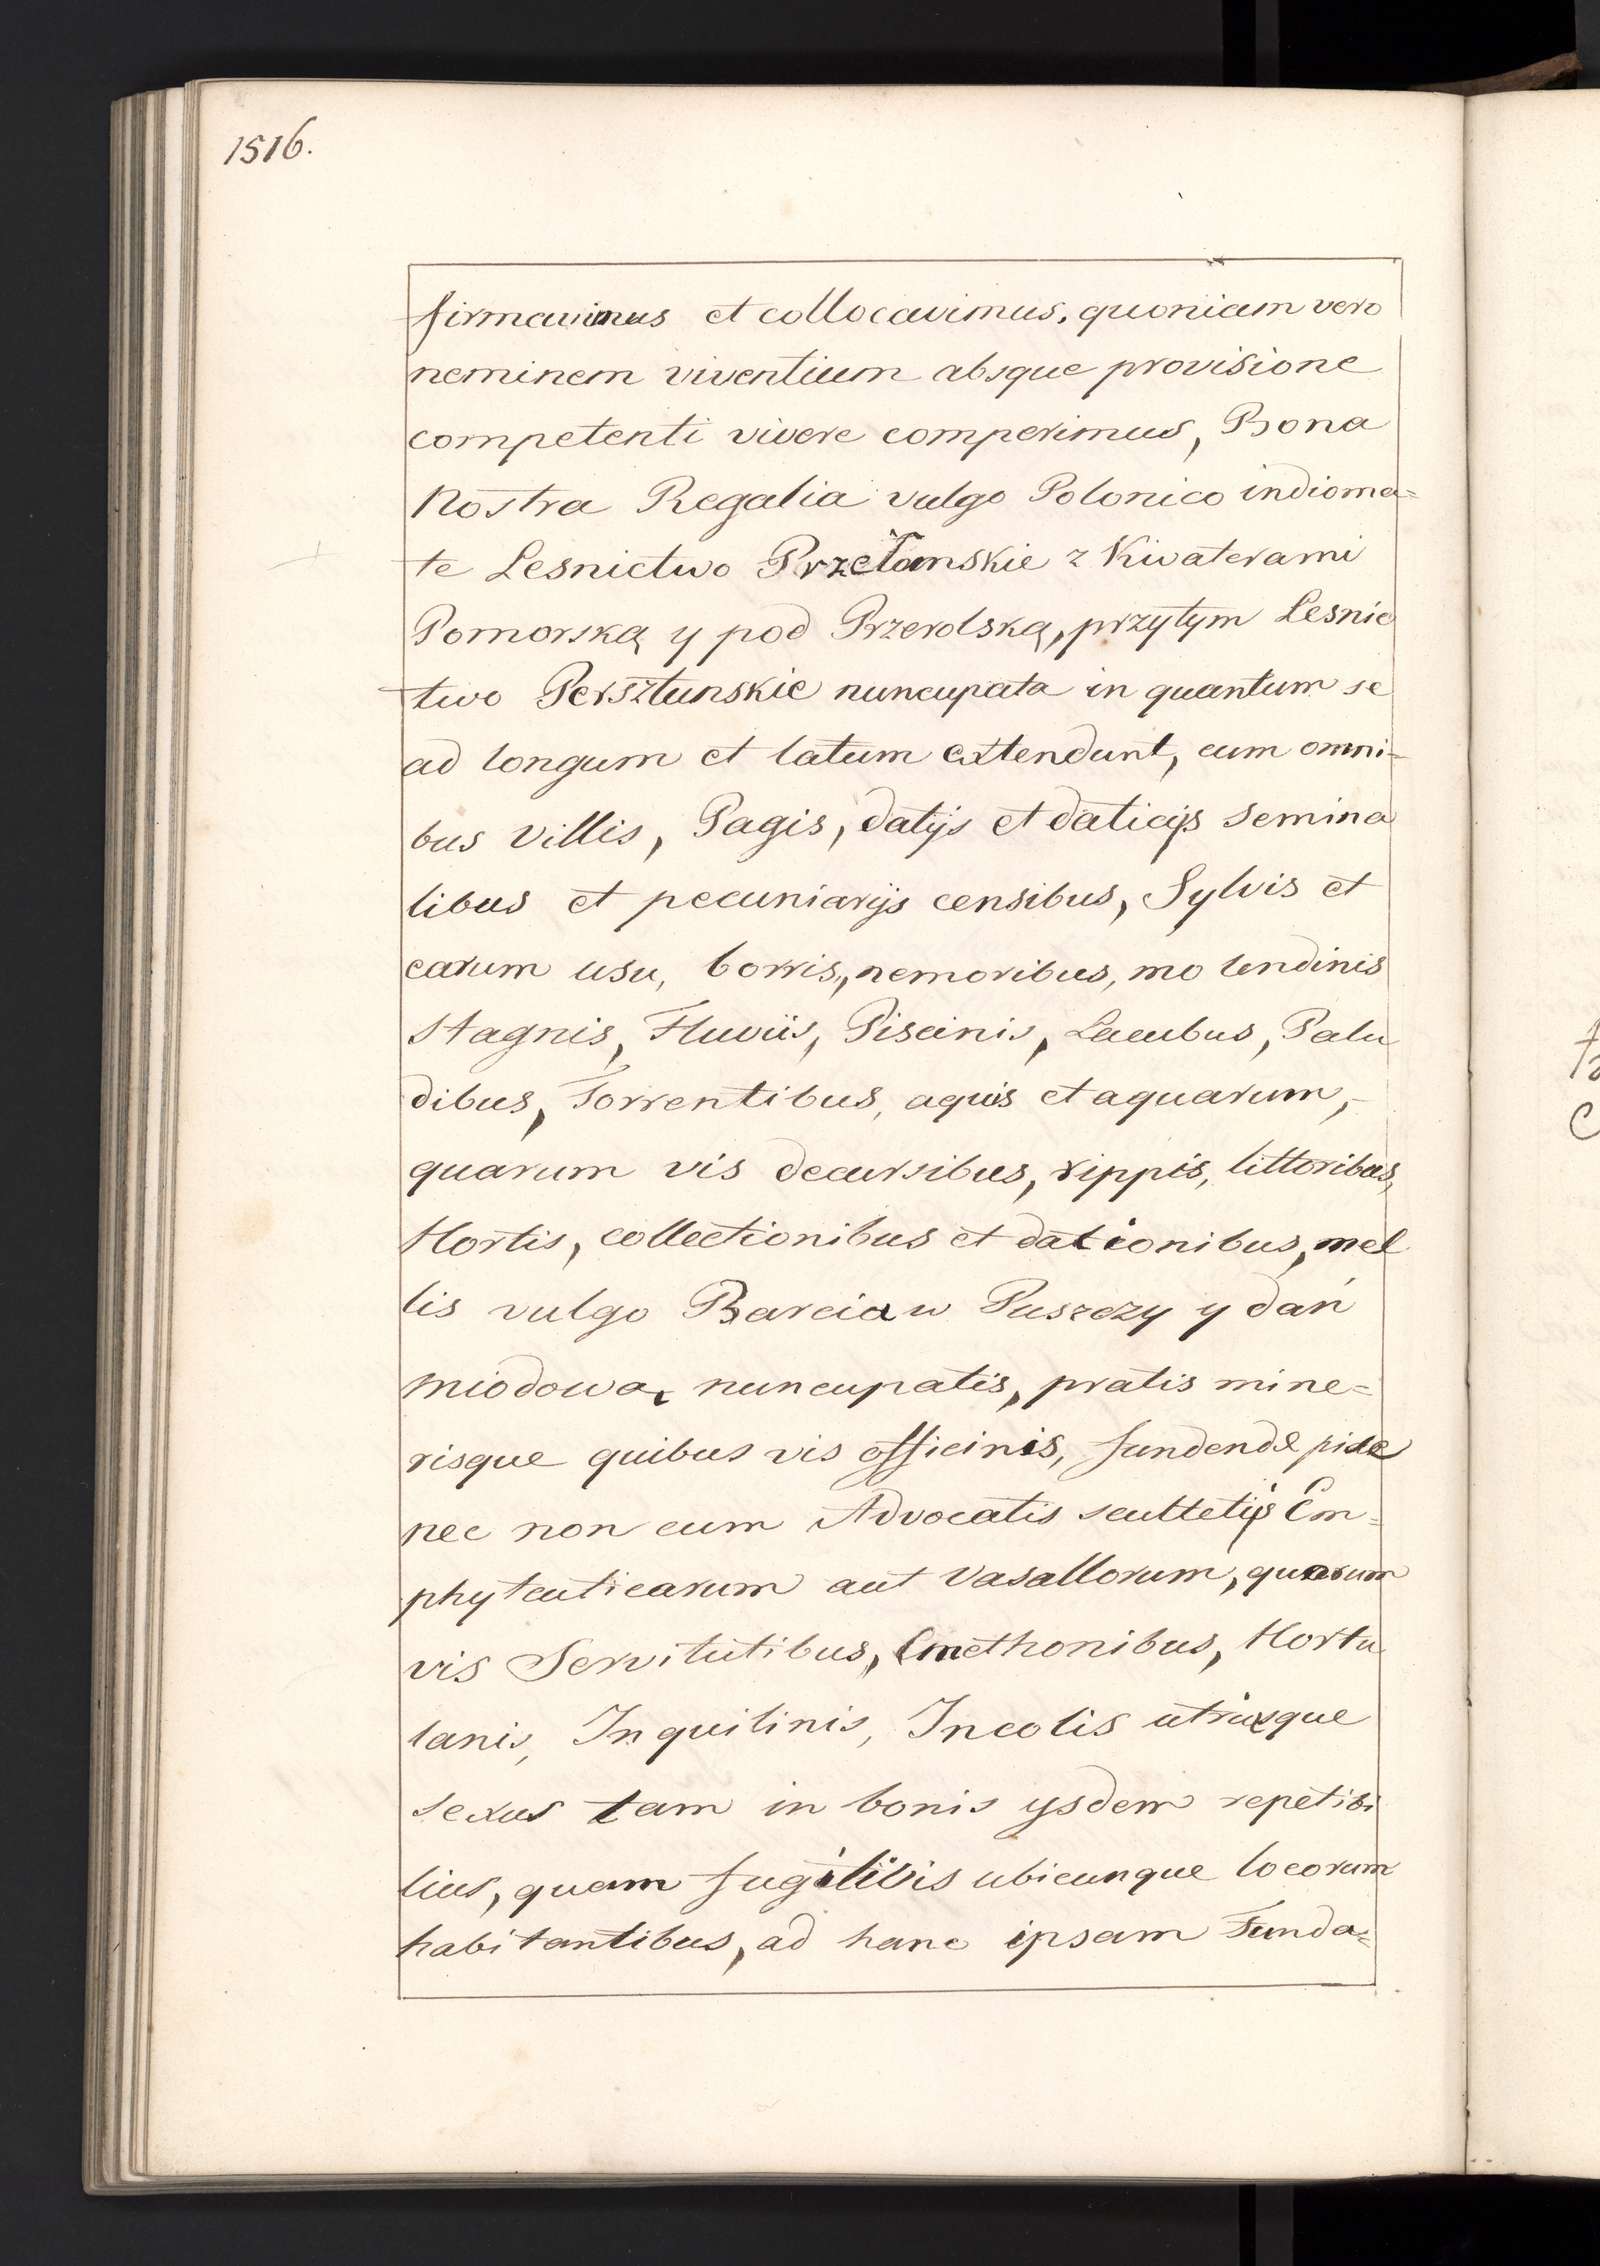 1516.
firmavimus et collocavimus, quoniam vero
neminem viventium absque provisione
competenti vivere comperimus, Bona
Nostra Regalia vulgo Polonico indioma=
te Lesnictwo Przełomskie z Kwaterami
Pomorską y pod Przerolską, przytym Lesnic
two Persztunskie nuncupata in quantum se
ad longum et latum extendunt, cum omni=
bus Villis, Pagis, datijs et daticijs semina
libus et pecuniarijs censibus, Sylvis et
earum usu, borris, nemoribus, mo lendinis
Stagnis, Fluviis, Piscinis, Lacubus, Palu
dibus, Torrentibus, aquis et aquarum,
quarum vis decursibus, rippis, littoribus,
Hortis, collectionibus et dationibus, mel
lis vulgo Barcia w Puszczy y dań
miodowa, nuncupatis, pratis mine=
risque quibus vis officinis, fundendæ
nec non cum Advocatis scultetijs Em=
phyteuticarum aut Vasallorum, quarum
vis Servitutibus, Cmethonibus, Hortu
lanis, Inquilinis, Incolis utriusque
sexus tam in bonis ijsdem repetibi
lius, quam fugitivis ubicunque locorum
habitantibus, ad hanc ipsam Funda=